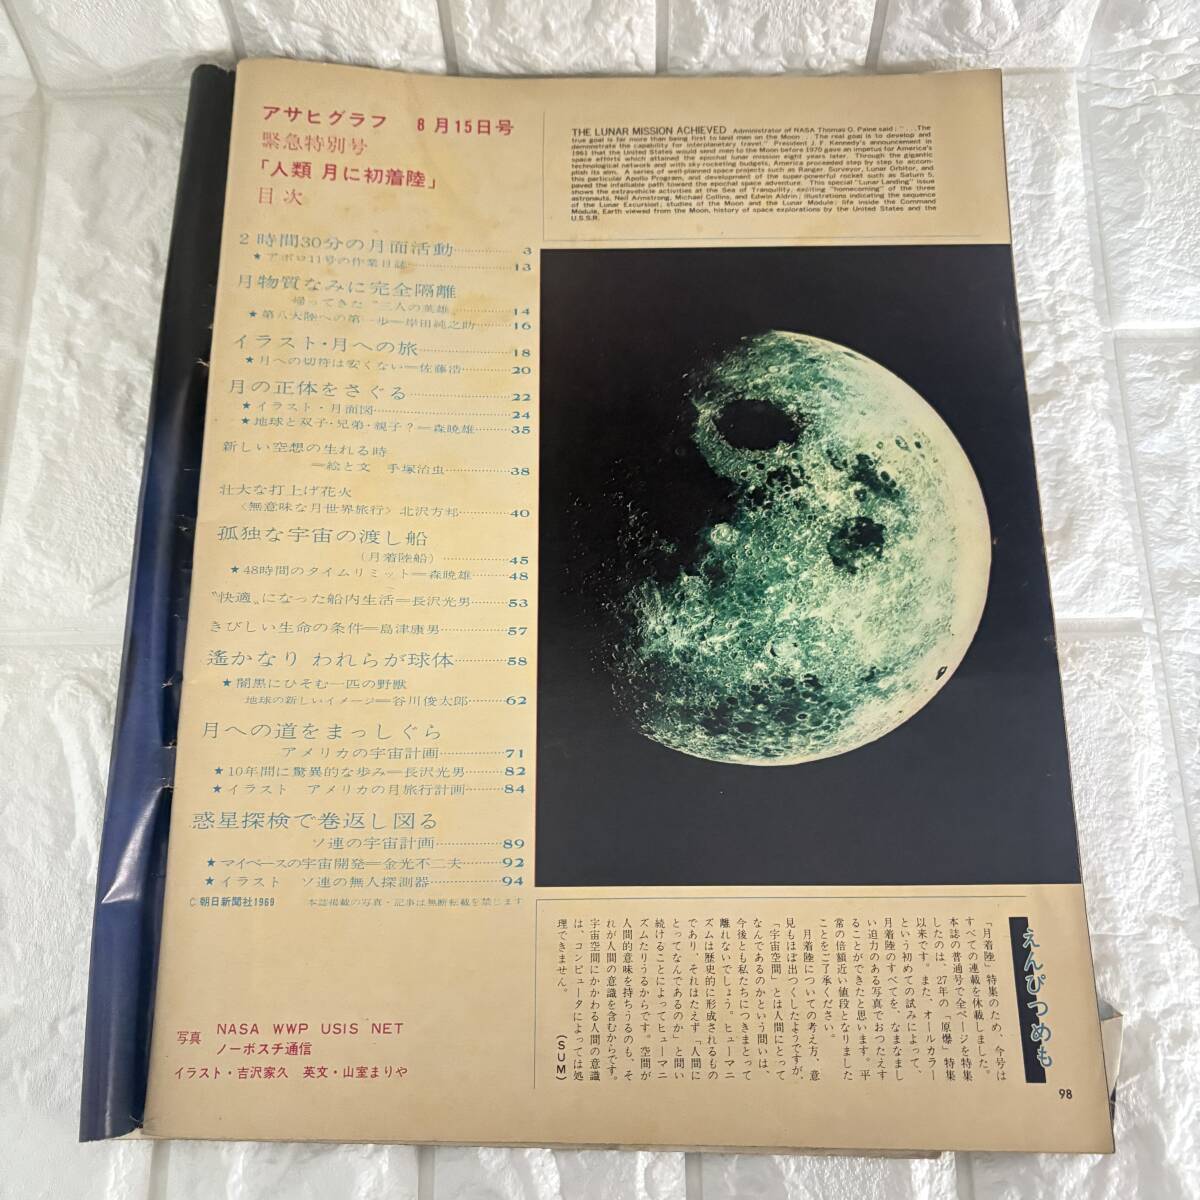 アサヒグラフ 8月15日号
緊急特別号
「人類 月に初着陸」
目次
2時間30分の月面活動 3
★アポロ11号の作業日誌 13
月物質なみに完全隔離
帰ってきた“三人の英雄 14
★第八大陸への第一歩＝岸田純之助 16
イラスト・月への旅 18
★月への切符は安くない＝佐藤浩 20
月の正体をさぐる 22
★イラスト・月面図 24
★地球と双子・兄弟・親子？＝森暁雄 35
新しい空想の生れる時
＝絵と文 手塚治虫 38
壮大な打上げ花火
〈無意味な月世界旅行〉北沢方邦 40
孤独な宇宙の渡し船
（月着陸船） 45
★48時間のタイムリミット＝森暁雄 48
〝快適〟になった船内生活＝長沢光男 53
きびしい生命の条件＝島津康男 57
遙かなり われらが球体 58
★闇黒にひそむ一匹の野獣
地球の新しいイメージ＝谷川俊太郎 62
月への道をまっしぐら
アメリカの宇宙計画 71
★10年間に驚異的な歩み＝長沢光男 82
★イラスト アメリカの月旅行計画 84
惑星探検で巻返し図る
ソ連の宇宙計画 89
★マイペースの宇宙開発＝金光不二夫 92
★イラスト ソ連の無人探測器 94
©朝日新聞社1969 本誌掲載の写真・記事は無断転載を禁じます
写真 NASA WWP USIS NET
ノーボスチ通信
イラスト・吉沢家久 英文・山室まりや
THE LUNAR MISSION ACHIEVED Administrator of NASA Thomas O. Paine said: "...The
true goal is far more than being first to land men on the Moon ... The real goal is to develop and
demonstrate the capability for interplanetary travel." President J. F. Kennedy's announcement in
1961 that the United States would send men to the Moon before 1970 gave an impetus for America's
space efforts which attained the epochal lunar mission eight years later. Through the gigantic
technological network and with sky-rocketing budgets, America proceeded step by step to accom-
plish its aim. A series of well-planned space projects such as Ranger, Surveyor, Lunar Orbitor, and
this particular Apollo Program, and development of the super-powerful rocket such as Saturn 5,
paved the infallible path toward the epochal space adventure. This special "Lunar Landing" issue
shows the extravehicle activities at the Sea of Tranquility; exciting "homecoming" of the three
astronauts, Neil Armstrong, Michael Collins, and Edwin Aldrin; illustrations indicating the sequence
of the Lunar Excursion; studies of the Moon and the Lunar Module; life inside the Command
Module, Earth viewed from the Moon, history of space explorations by the United States and the
U.S.S.R.
えんぴつめも
「月着陸」特集のため、今号は
すべての連載を休載しました。
本誌の普通号で全ページを特集
したのは、27年の「原爆」特集
以来です。また、オールカラー
という初めての試みによって、
月着陸のすべてを、なまなまし
い迫力のある写真でおつたえす
ることができたと思います。平
常の倍額近い値段となりました
ことをご了承ください。
月着陸についての考え方、意
見もほぼ出つくしたようですが、
「宇宙空間」とは人間にとって
なんであるのかという問いは、
今後とも私たちにつきまとって
離れないでしょう。ヒューマニ
ズムは歴史的に形成されるもの
であり、それはたえず「人間に
とってなんであるのか」と問い
続けることによってヒューマニ
ズムたりうるからです。空間が
人間的意味を持ちうるのも、そ
れが人間の意識を含むからです。
宇宙空間にかかわる人間の意識
は、コンピュータによっては処
理できません。 （SUM）
98